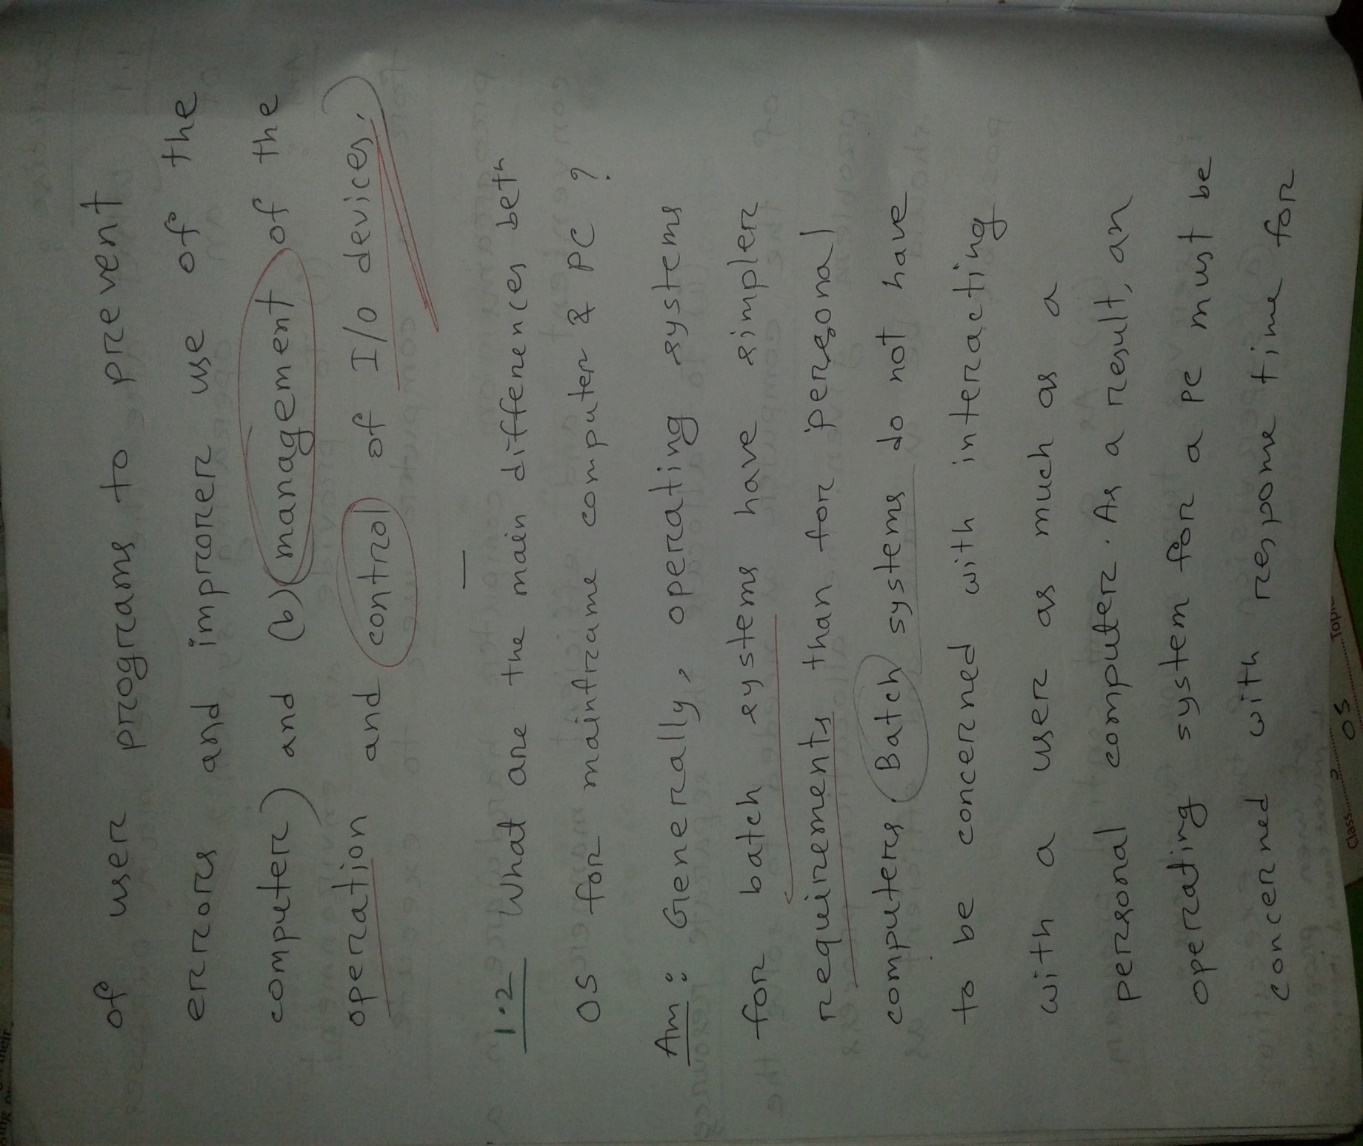 of user programs to prevent
errors and improrer use of the
computer) and (b) management of the
operation and control of I/O devices.
1.2 What are the main differences beth
OS for mainframe computer & PC ?
Ans: Generally, operating systems
for batch systems have simpler
requirements than for personal
computers. Batch systems do not have
to be concerned with interacting
with a user as much as a
personal computer. As a result, an
operating system for a pc must be
concerned with response time for
Class..... OS Topic